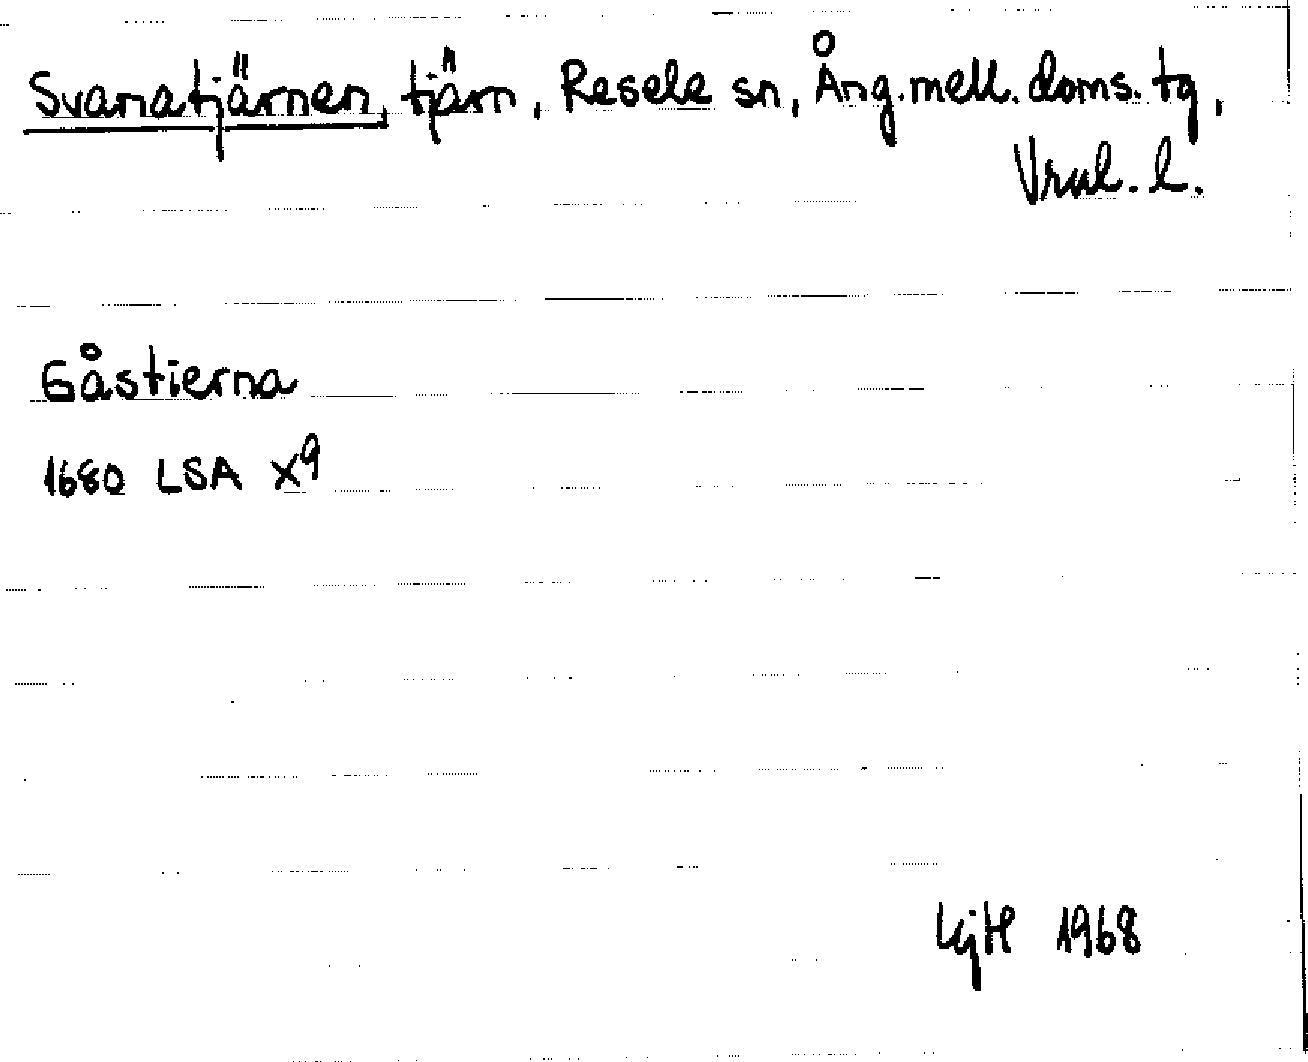 Svanatjärnen, tjärn, Resele sn, Ång.mell.doms.tg,
Vrnl. l.
Gåstierna
1680 LSA X9
1968